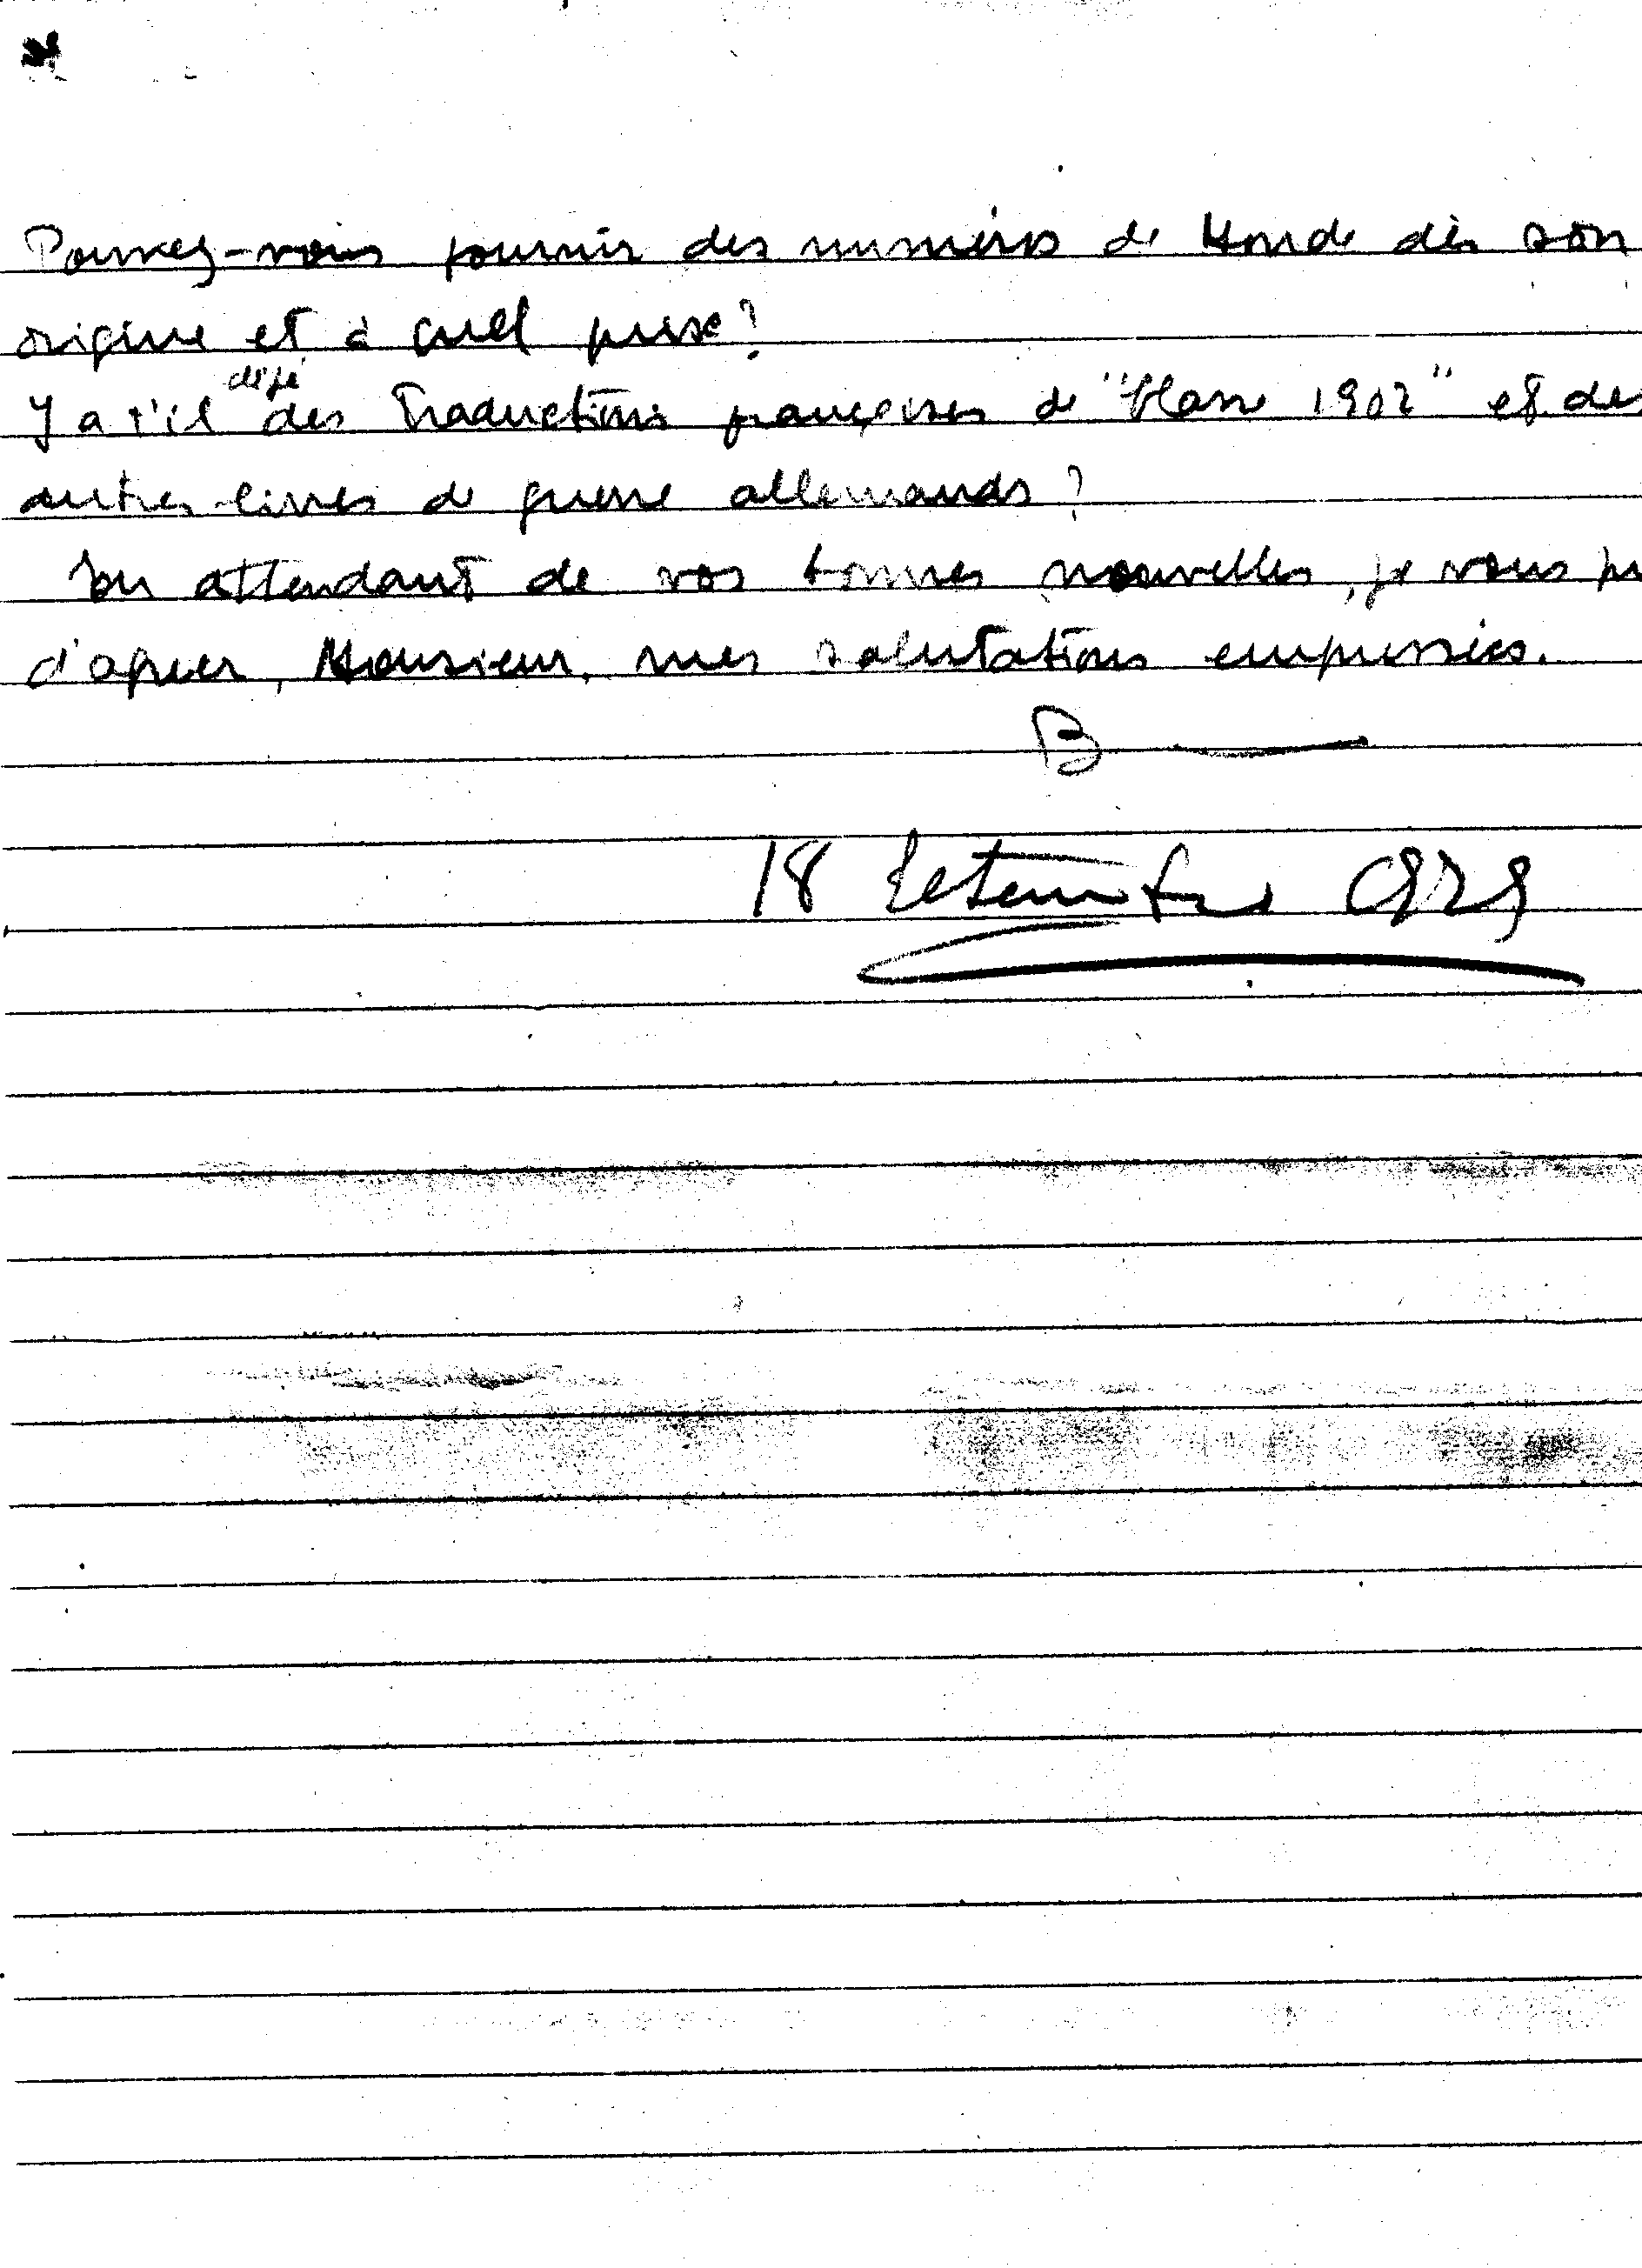 Pouvez-vous fournir des numéros de Monde dès son
origine et à quel prix?
déjà
Y a t'il des Traductions françaises de "Classe 1902" et des
autres livres de guerre allemands?
En attendant de vos bonnes nouvelles, je vous pr
d'agréer, Monsieur, mes salutations empressées.
B
18 Septembre 1929